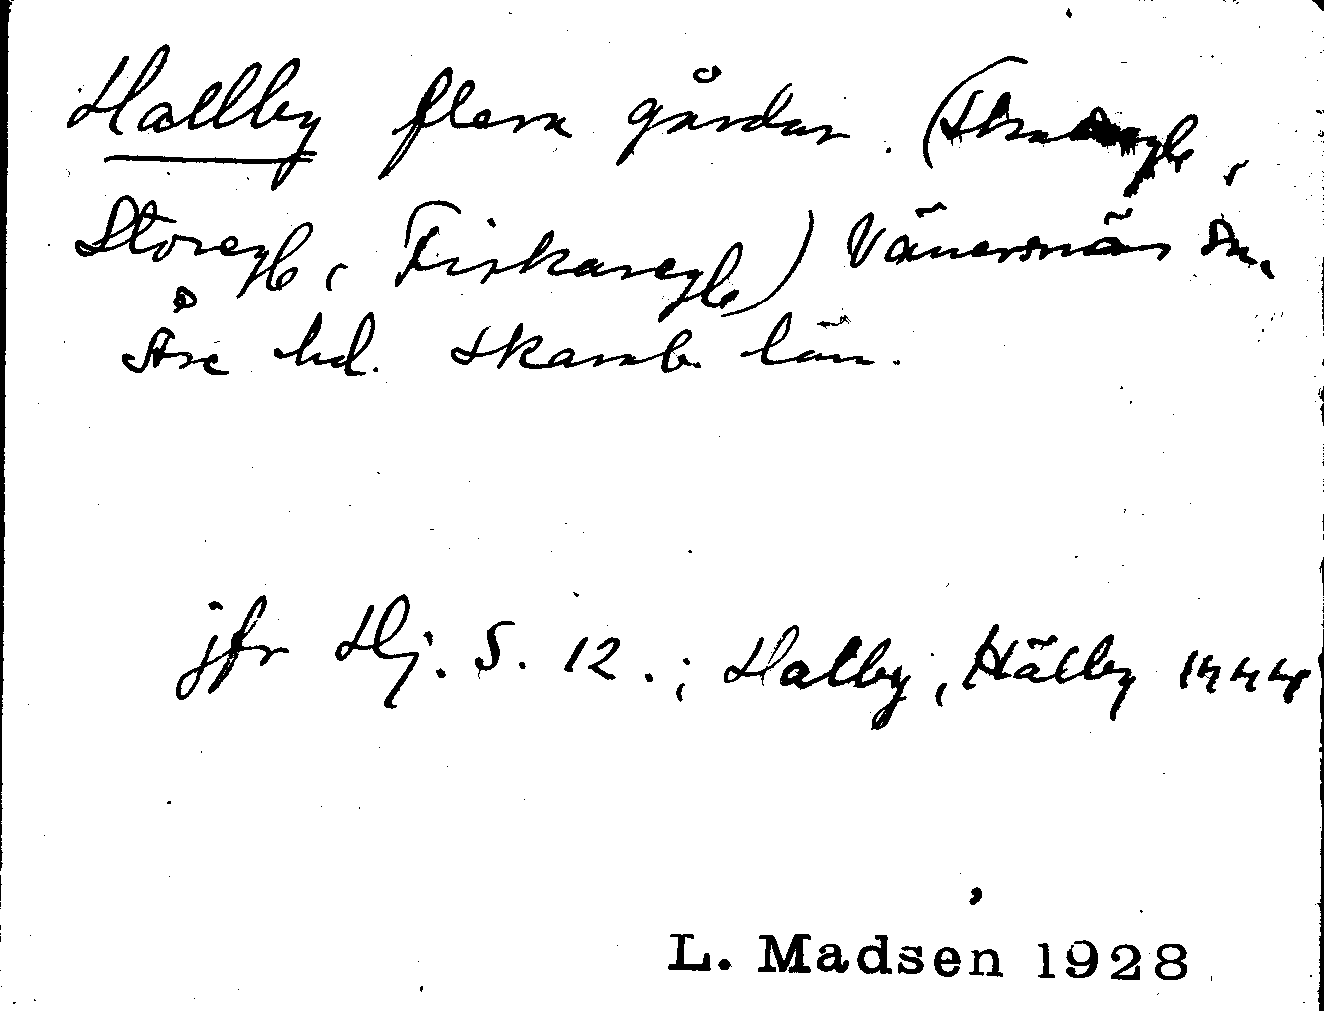 Hallby flera gårdar. (
Storegb, Fiskaregb) Vänersnäs sn.
Åse hd. Skarab. län.
jfr Hj. S. 12.; Halby, Hälby 1444
L. Madsen 1928